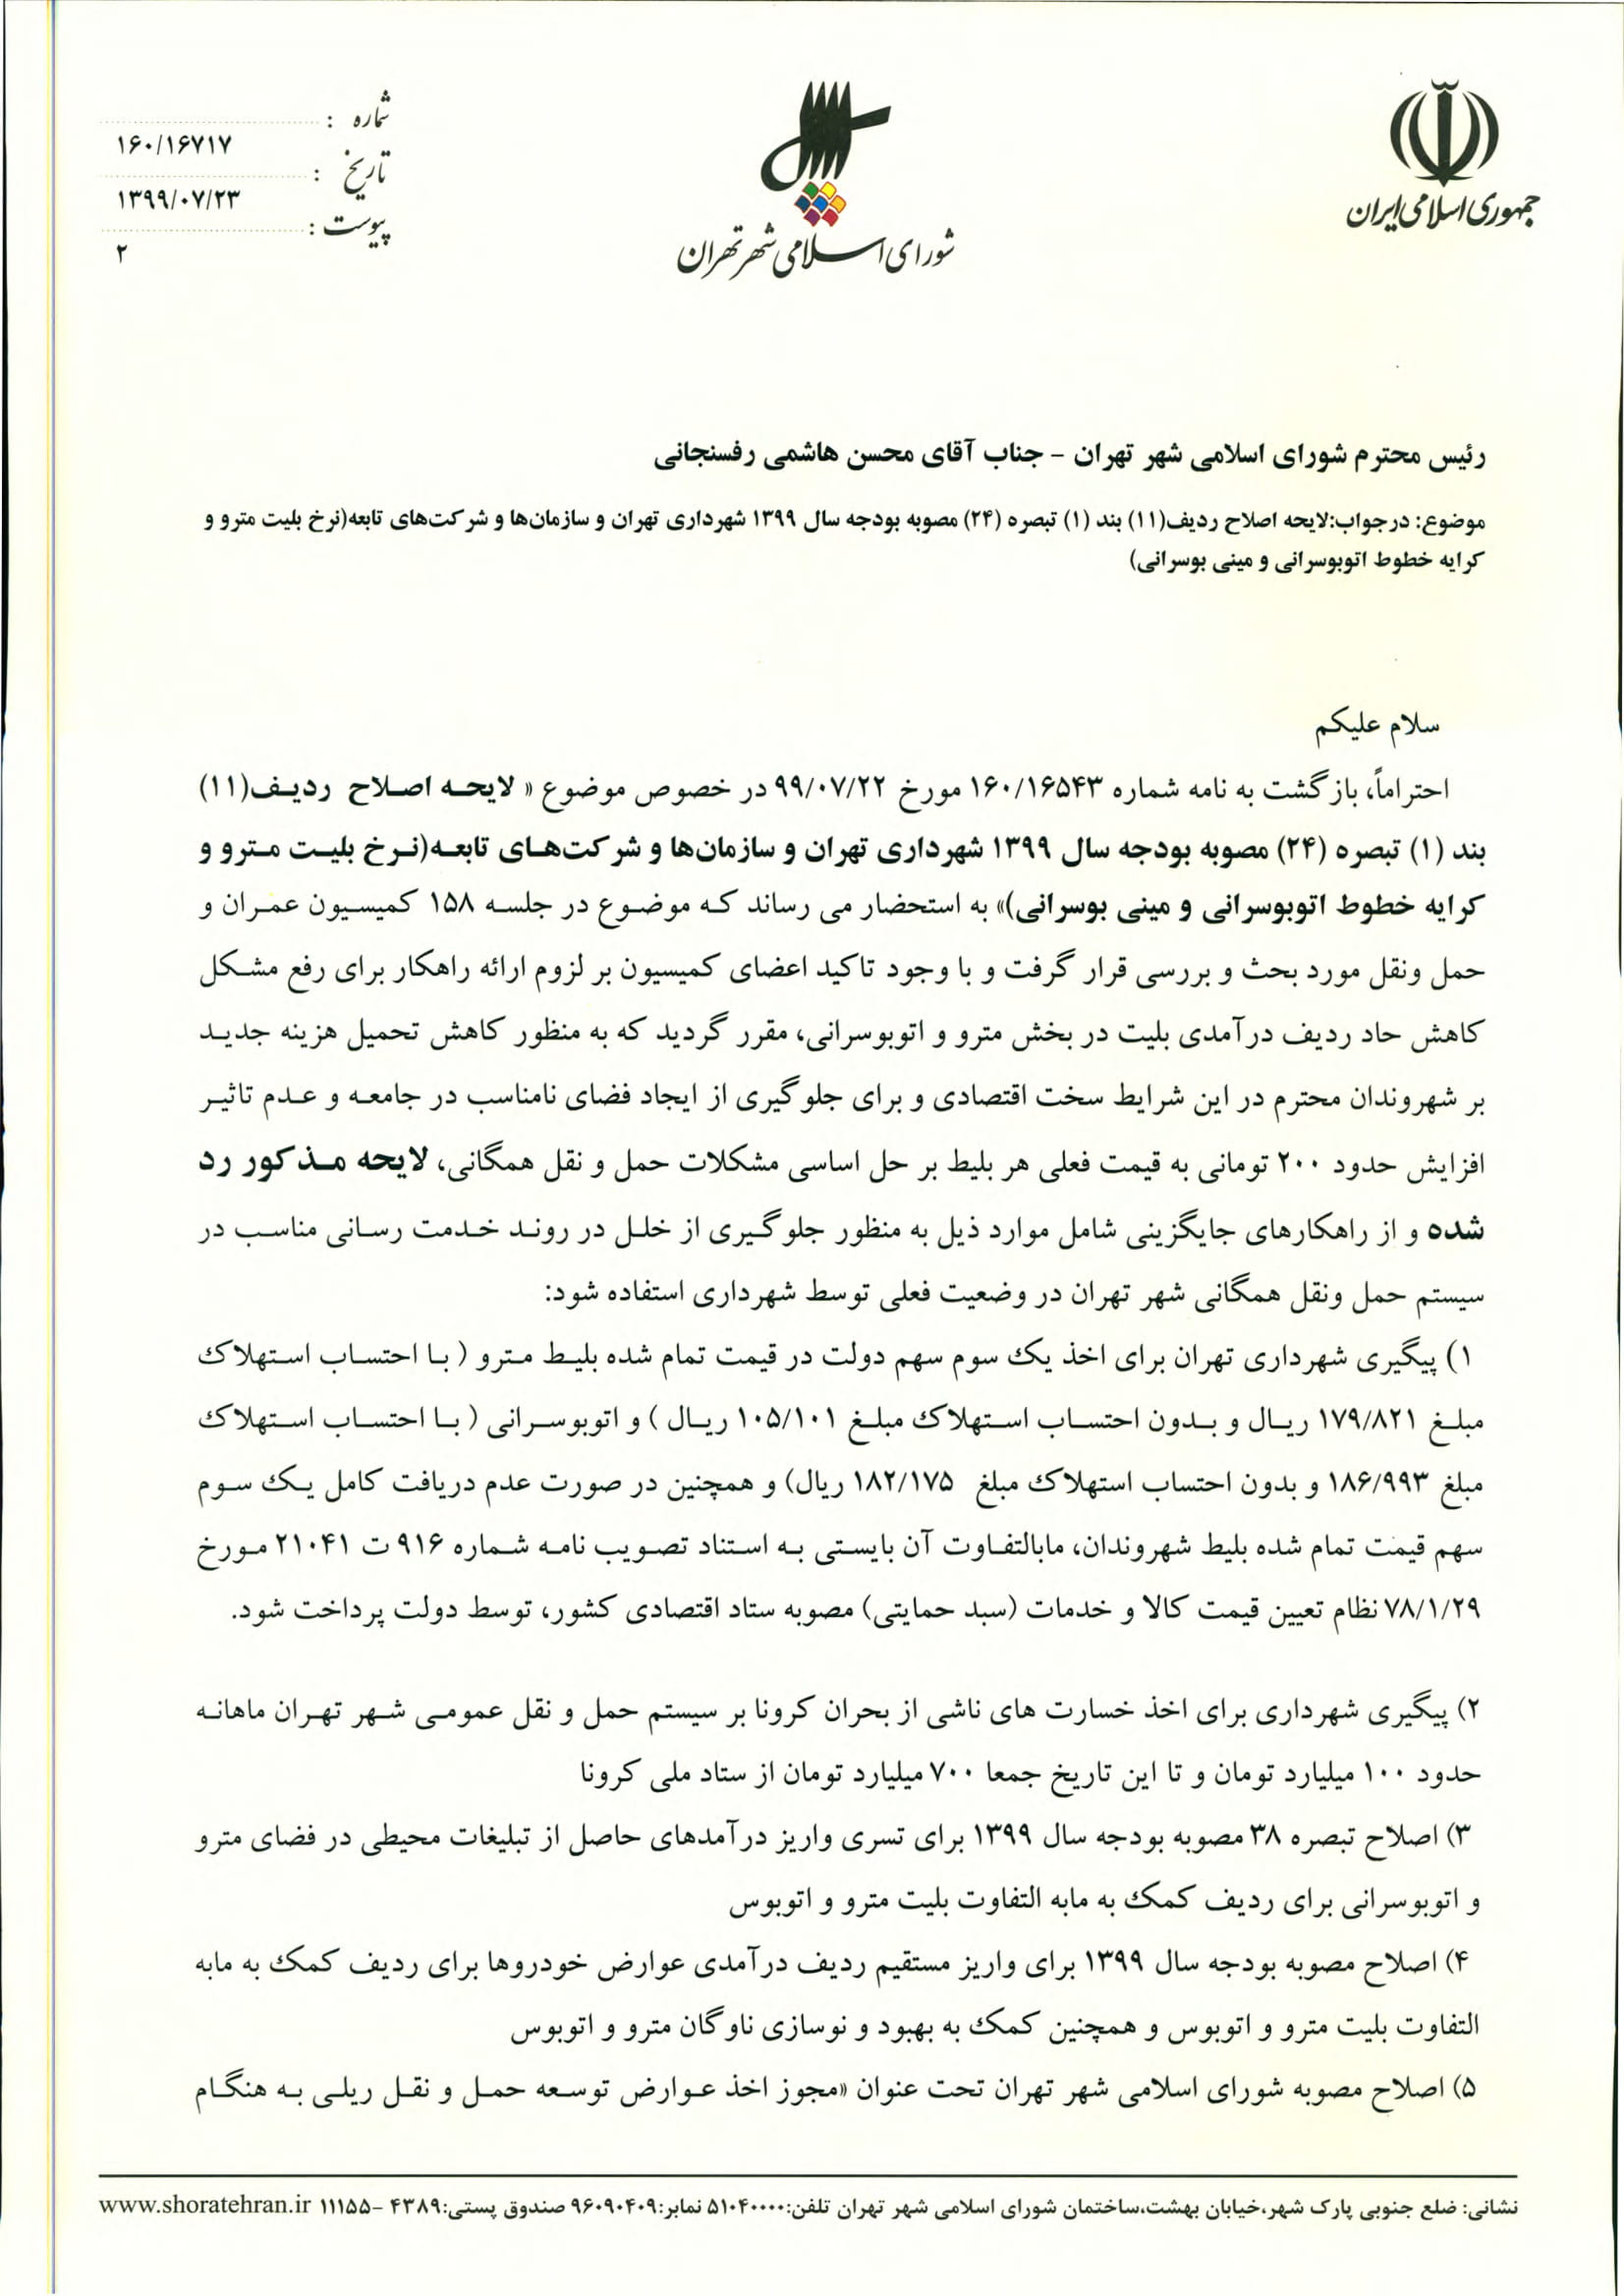 جمهوری اسلامی ایران
شورای اسلامی شهر تهران
شماره :
۱۶۰/۱۶۷۱۷
تاریخ :
۱۳۹۹/۰۷/۲۳
پیوست :
۲
رئیس محترم شورای اسلامی شهر تهران – جناب آقای محسن هاشمی رفسنجانی
موضوع: درجواب:لایحه اصلاح ردیف(۱۱) بند (۱) تبصره (۲۴) مصوبه بودجه سال ۱۳۹۹ شهرداری تهران و سازمان‌ها و شرکت‌های تابعه(نرخ بلیت مترو و
کرایه خطوط اتوبوسرانی و مینی بوسرانی)
سلام علیکم
احتراماً، بازگشت به نامه شماره ۱۶۰/۱۶۵۴۳ مورخ ۹۹/۰۷/۲۲ در خصوص موضوع « لایحه اصلاح ردیف(۱۱)
بند (۱) تبصره (۲۴) مصوبه بودجه سال ۱۳۹۹ شهرداری تهران و سازمان‌ها و شرکت‌های تابعه(نرخ بلیت مترو و
کرایه خطوط اتوبوسرانی و مینی بوسرانی)» به استحضار می رساند که موضوع در جلسه ۱۵۸ کمیسیون عمران و
حمل ونقل مورد بحث و بررسی قرار گرفت و با وجود تاکید اعضای کمیسیون بر لزوم ارائه راهکار برای رفع مشکل
کاهش حاد ردیف درآمدی بلیت در بخش مترو و اتوبوسرانی، مقرر گردید که به منظور کاهش تحمیل هزینه جدید
بر شهروندان محترم در این شرایط سخت اقتصادی و برای جلوگیری از ایجاد فضای نامناسب در جامعه و عدم تاثیر
افزایش حدود ۲۰۰ تومانی به قیمت فعلی هر بلیط بر حل اساسی مشکلات حمل و نقل همگانی، لایحه مذکور رد
شده و از راهکارهای جایگزینی شامل موارد ذیل به منظور جلوگیری از خلل در روند خدمت رسانی مناسب در
سیستم حمل ونقل همگانی شهر تهران در وضعیت فعلی توسط شهرداری استفاده شود:
۱) پیگیری شهرداری تهران برای اخذ یک سوم سهم دولت در قیمت تمام شده بلیط مترو ( با احتساب استهلاک
مبلغ ۱۷۹/۸۲۱ ریال و بدون احتساب استهلاک مبلغ ۱۰۵/۱۰۱ ریال ) و اتوبوسرانی ( با احتساب استهلاک
مبلغ ۱۸۶/۹۹۳ و بدون احتساب استهلاک مبلغ ۱۸۲/۱۷۵ ریال) و همچنین در صورت عدم دریافت کامل یک سوم
سهم قیمت تمام شده بلیط شهروندان، مابالتفاوت آن بایستی به استناد تصویب نامه شماره ۹۱۶ ت ۲۱۰۴۱ مورخ
۷۸/۱/۲۹ نظام تعیین قیمت کالا و خدمات (سبد حمایتی) مصوبه ستاد اقتصادی کشور، توسط دولت پرداخت شود.
۲) پیگیری شهرداری برای اخذ خسارت های ناشی از بحران کرونا بر سیستم حمل و نقل عمومی شهر تهران ماهانه
حدود ۱۰۰ میلیارد تومان و تا این تاریخ جمعا ۷۰۰ میلیارد تومان از ستاد ملی کرونا
۳) اصلاح تبصره ۳۸ مصوبه بودجه سال ۱۳۹۹ برای تسری واریز درآمدهای حاصل از تبلیغات محیطی در فضای مترو
و اتوبوسرانی برای ردیف کمک به مابه التفاوت بلیت مترو و اتوبوس
۴) اصلاح مصوبه بودجه سال ۱۳۹۹ برای واریز مستقیم ردیف درآمدی عوارض خودروها برای ردیف کمک به مابه
التفاوت بلیت مترو و اتوبوس و همچنین کمک به بهبود و نوسازی ناوگان مترو و اتوبوس
۵) اصلاح مصوبه شورای اسلامی شهر تهران تحت عنوان «مجوز اخذ عوارض توسعه حمل و نقل ریلی به هنگام
نشانی: ضلع جنوبی پارک شهر،خیابان بهشت،ساختمان شورای اسلامی شهر تهران تلفن:۵۱۰۴۰۰۰۰ نمابر:۹۶۰۹۰۴۰۹ صندوق پستی:۴۳۸۹ –۱۱۱۵۵ www.shoratehran.ir